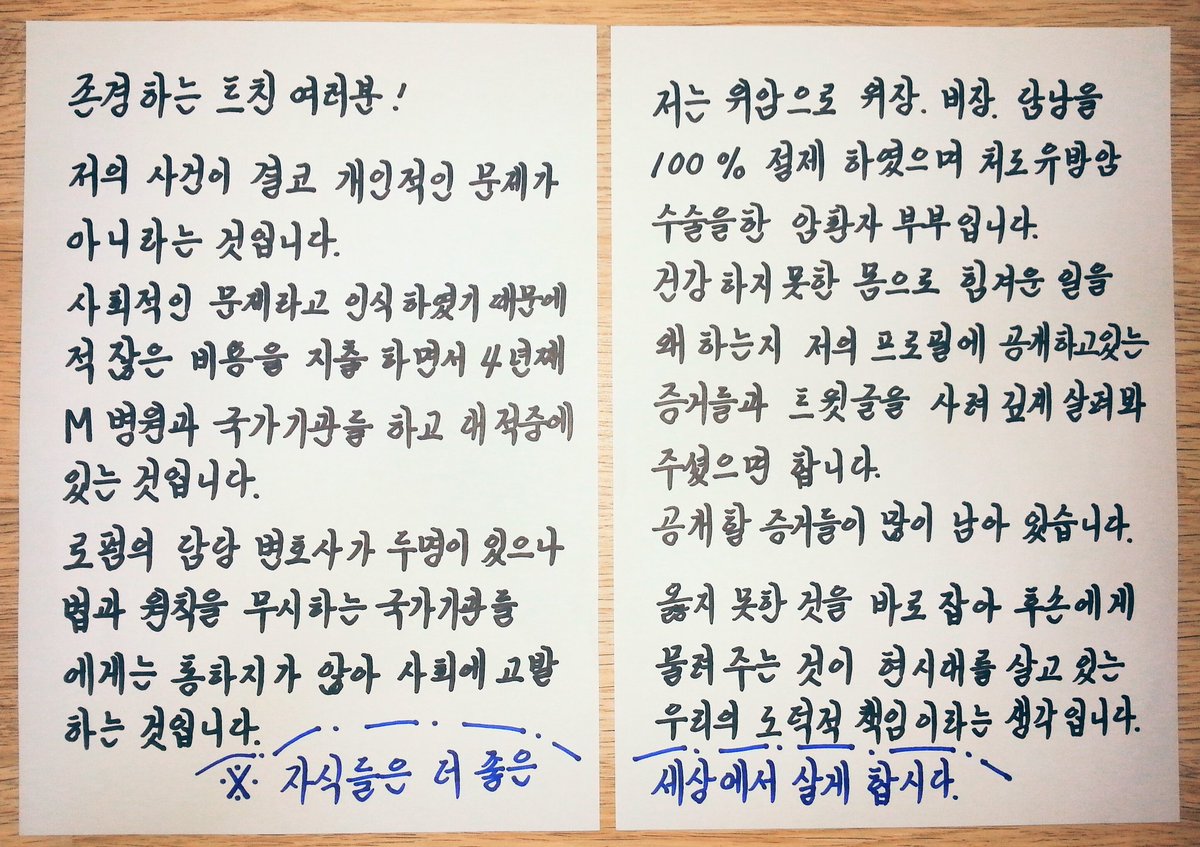 존경하는 트친 여러분!
저의 사건이 결코 개인적인 문제가
아니라는 것입니다.
사회적인 문제라고 인식하였기 때문에
적잖은 비용을 지출하면서 4년째
M 병원과 국가기관들 하고 대적중에
있는 것입니다.
로펌의 담당 변호사가 두명이 있으나
법과 원칙을 무시하는 국가기관들
에게는 통하지가 않아 사회에 고발
하는 것입니다.
※ 자식들은 더 좋은
저는 위암으로 위장. 비장. 담낭을
100% 절제 하였으며 처도 유방암
수술을한 암환자 부부입니다.
건강하지 못한 몸으로 힘겨운 일을
왜 하는지 저의 프로필에 공개하고있는
증거들과 트윗글을 사려 깊게 살펴봐
주셨으면 합니다.
공개할 증거들이 많이 남아 있습니다.
옳지 못한 것을 바로 잡아 후손에게
물려 주는 것이 현시대를 살고 있는
우리의 도덕적 책임이라는 생각입니다.
세상에서 살게 합시다.